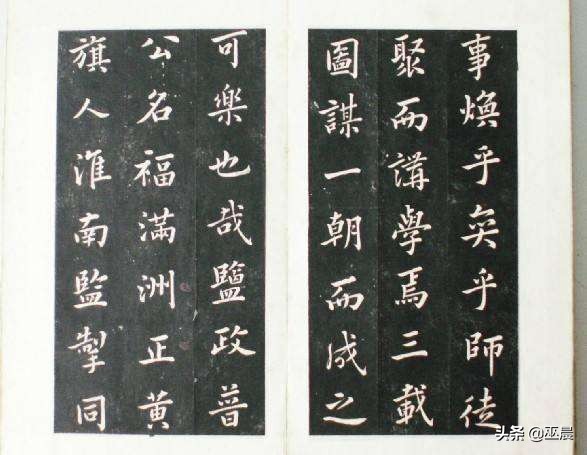 事煥乎奐乎師徒
聚而講學焉三載
圖謀一朝而成之
可樂也哉鹽政普
公名福滿洲正黃
旗人淮南監掣同
头条 @巫晨